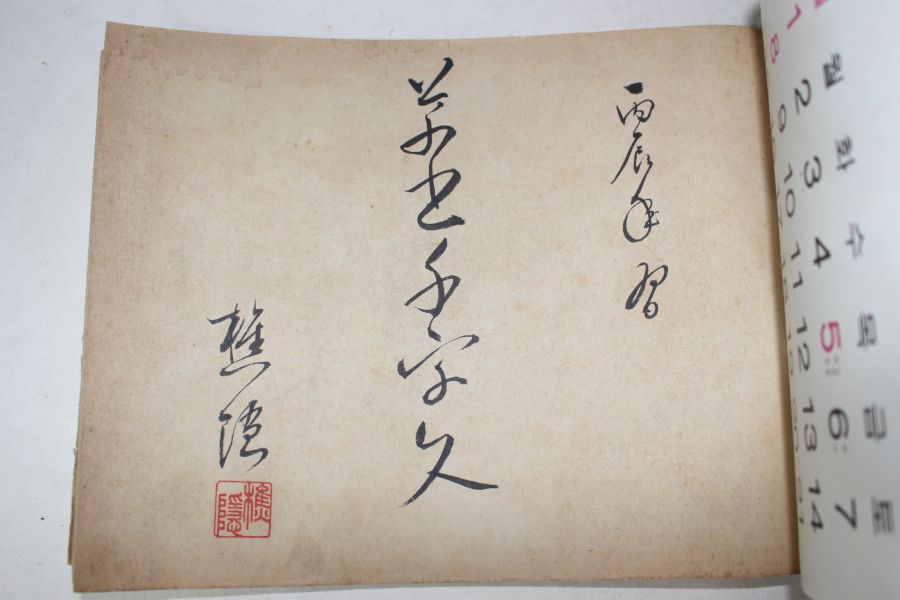 월 화 수 목 금 토
1 2 3 4 5 6 7
8 9 10 11 12 13 14
丙辰年習
草書千字文
樵隱
樵隱